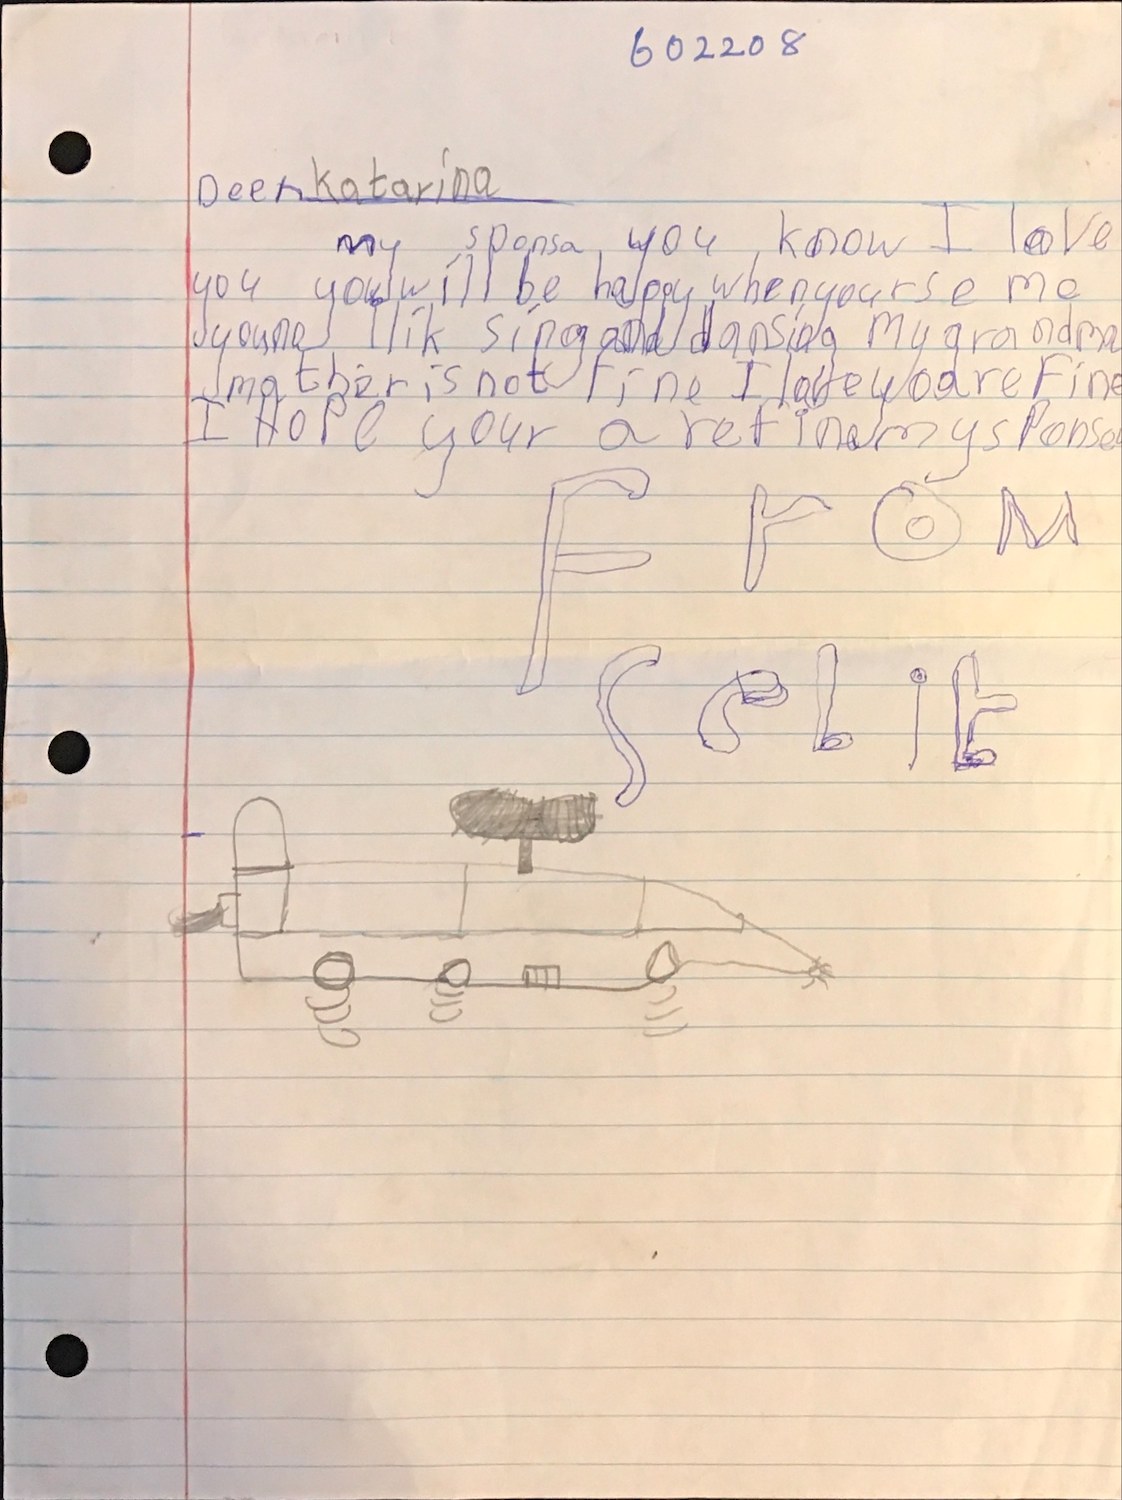 602208
Deer katarina
my sponsa you know I love
you you will be happy when yourse me
I lik sing and dansing My grandma
mather is not fine I love yoo are Fine
I HoPe your are fine my sPonsa
FrOM
Selit